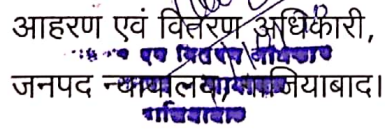 आहरण एवं वितरण अधिकारी,
एवं वितरण अधिकारी
जनपद न्यायालय, गाजियाबाद।
गाजियाबाद